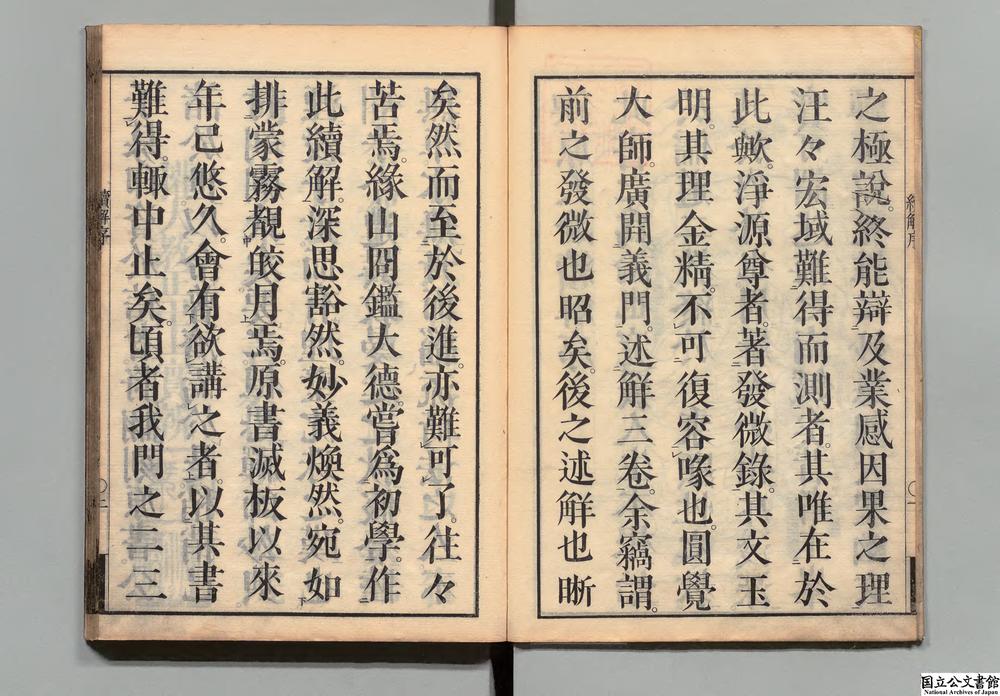 之極說。終能辯及業感因果之理
汪々宏域難得而測者。其唯在於
此歟。淨源尊者。著發微錄。其文玉
明。其理金精。不可復容喙也。圓覺
大師。廣開義門。述解三卷。余竊謂。
前之發微也昭矣。後之述解也晰
矣然而至於後進。亦難可了。往々
苦焉。緣山冏鑑大德嘗爲初學。作
此續解。深思豁然。妙義煥然。宛如
排蒙霧覩皎月焉。原書滅板以來
年已悠久。會有欲講之者。以其書
難得。輙中止矣。頃者我門之二三
續解序
國立公文書館
National Archives of Japan